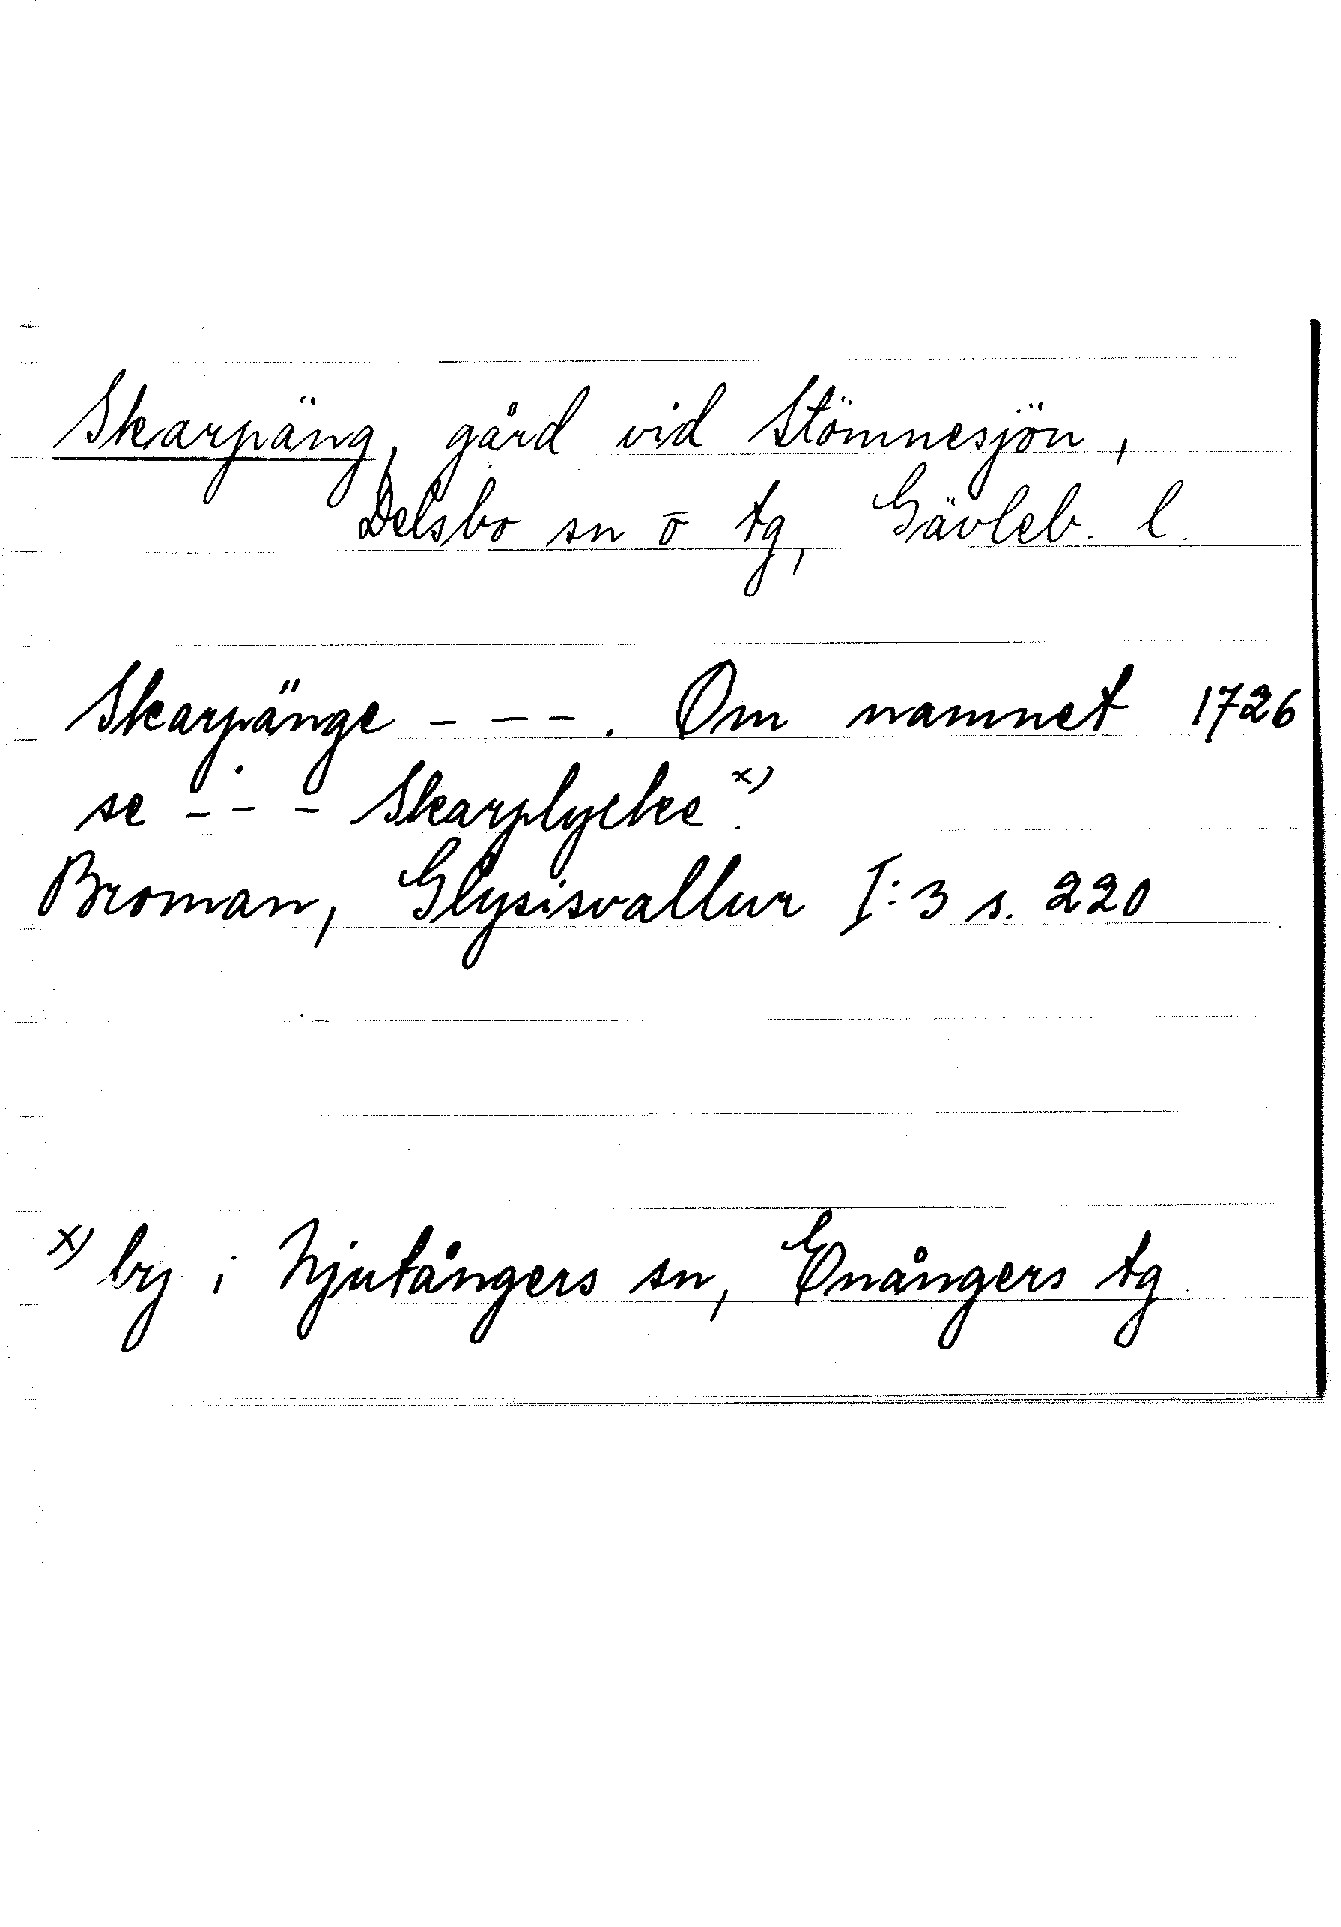 Skarpäng, gård vid Stömnesjön,
Delsbo sn o tg, Gävleb. l.
Skarpänge - - - . Om namnet 1726
se - - - Skarplycke x)
Broman, Glysisvallur I:3 s. 220
x) by i Njutångers sn, Enångers tg